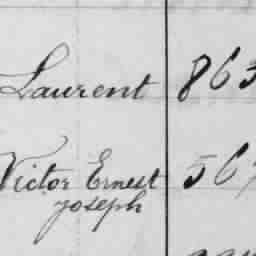 Laurent 863
Victor Ernest 56
Joseph